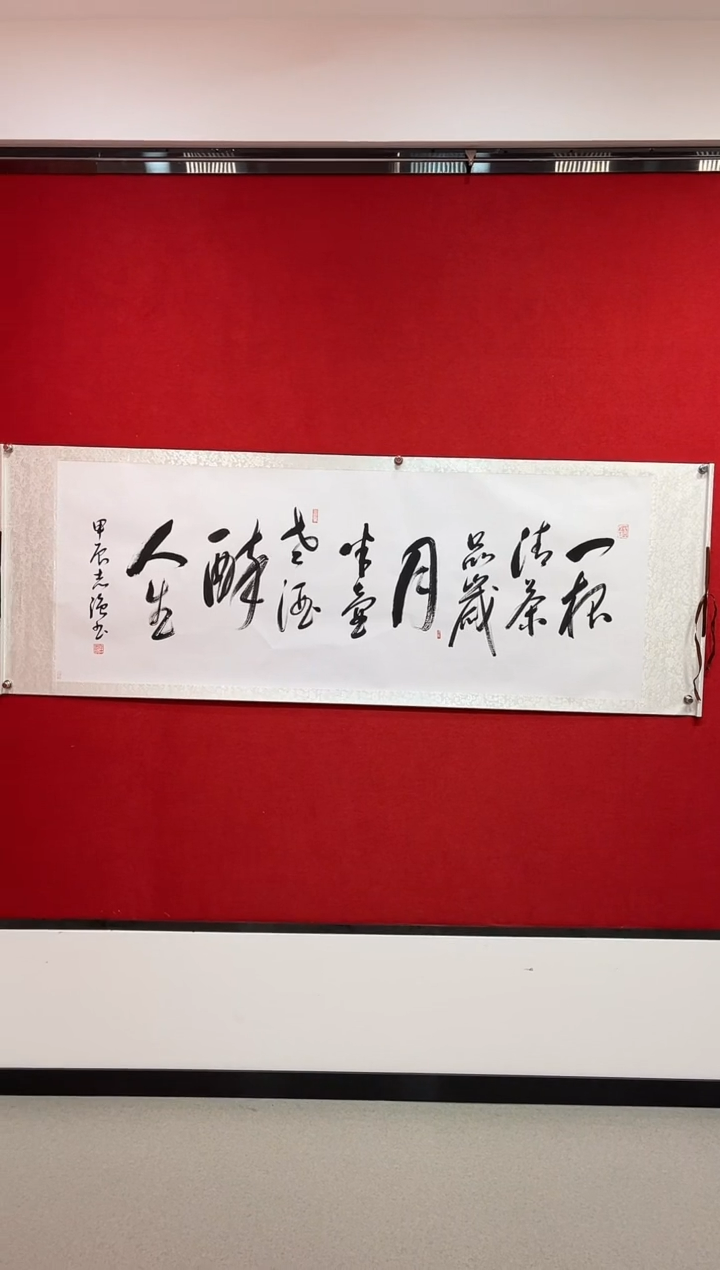 一杯
清茶
品歲
月
半壺
老酒
醉
人生
甲辰志強书